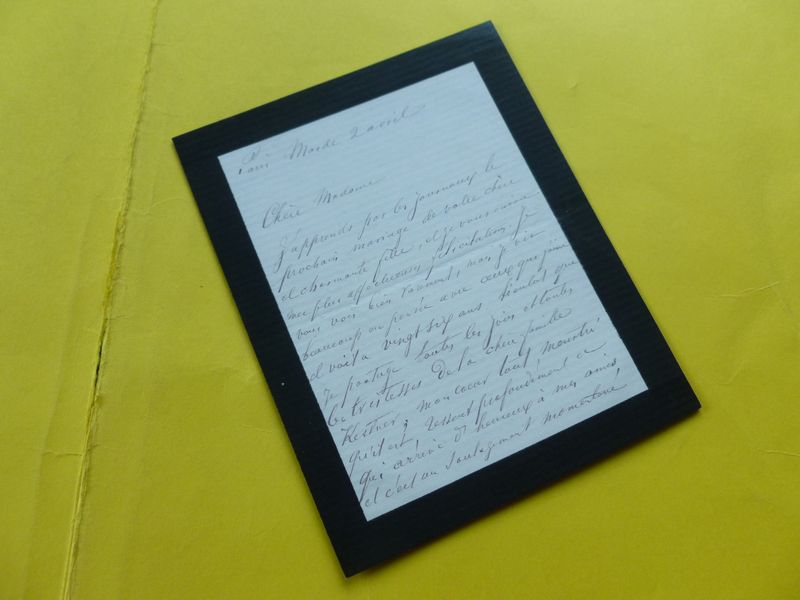 Mardi 2 avril
Chère Madame
J'apprends par les journaux le
prochain mariage de votre chère
et charmante fille, et je vous envoie
mes plus affectueuses félicitations. Je
vous vois bien rarement, mais je vis
beaucoup en pensée avec ceux que j'aime
et voilà vingt six ans bientôt que
je partage toutes les joies et toutes
les tristesses de la chère famille
Kestner, mon coeur tout meurtri
qu'il est, ressent profondément ce
qui arrive d'heureux à mes amis
et c'est un soulagement momentané,